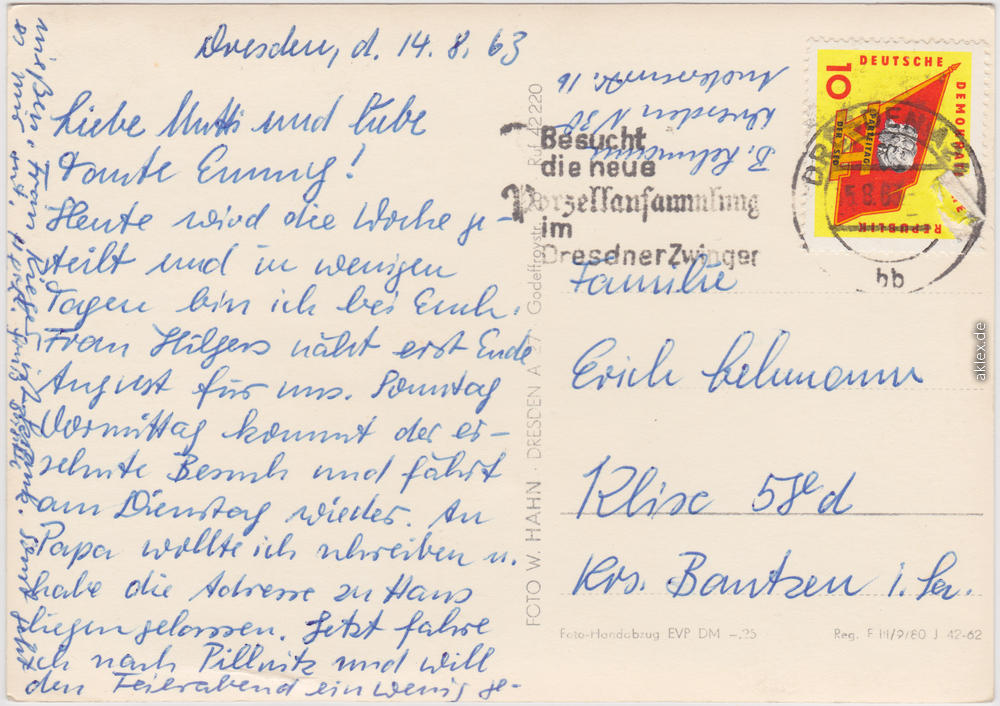 Dresden, d. 14.8.63
Liebe Mutti und liebe
Tante Emmy!
Heute wird die Woche ge-
teilt und in wenigen
Tagen bin ich bei Euch.
Frau Hilgers näht erst Ende
August für uns. Sonntag
Vormittag kommt der er-
sehnte Besuch und fährt
am Dienstag wieder. An
Papa wollte ich schreiben u.
habe die Adresse zu Haus
liegen gelassen. Jetzt fahre
ich nach Pillnitz und will
den Feierabend ein wenig ge-
nießen. Frau
es mir gut.
Sonst geht
FOTO W. HAHN · DRESDEN A 27 Godeffroystr. Ruf 42220
B. Lehmann
Dresden N 30
16
Besucht
die neue
Porzellansammlung
im
Dresdner Zwinger
10
DEUTSCHE
DEMOKRATI
REPUBLIK
PARTEITAG
DER SED
DRESDEN A
bb
Familie
Erich Lehmann
Klix 58d
Krs. Bautzen i. Sa.
Foto-Handabzug EVP DM -.25
Reg. F III/9/80 J 42-62
aklex.de